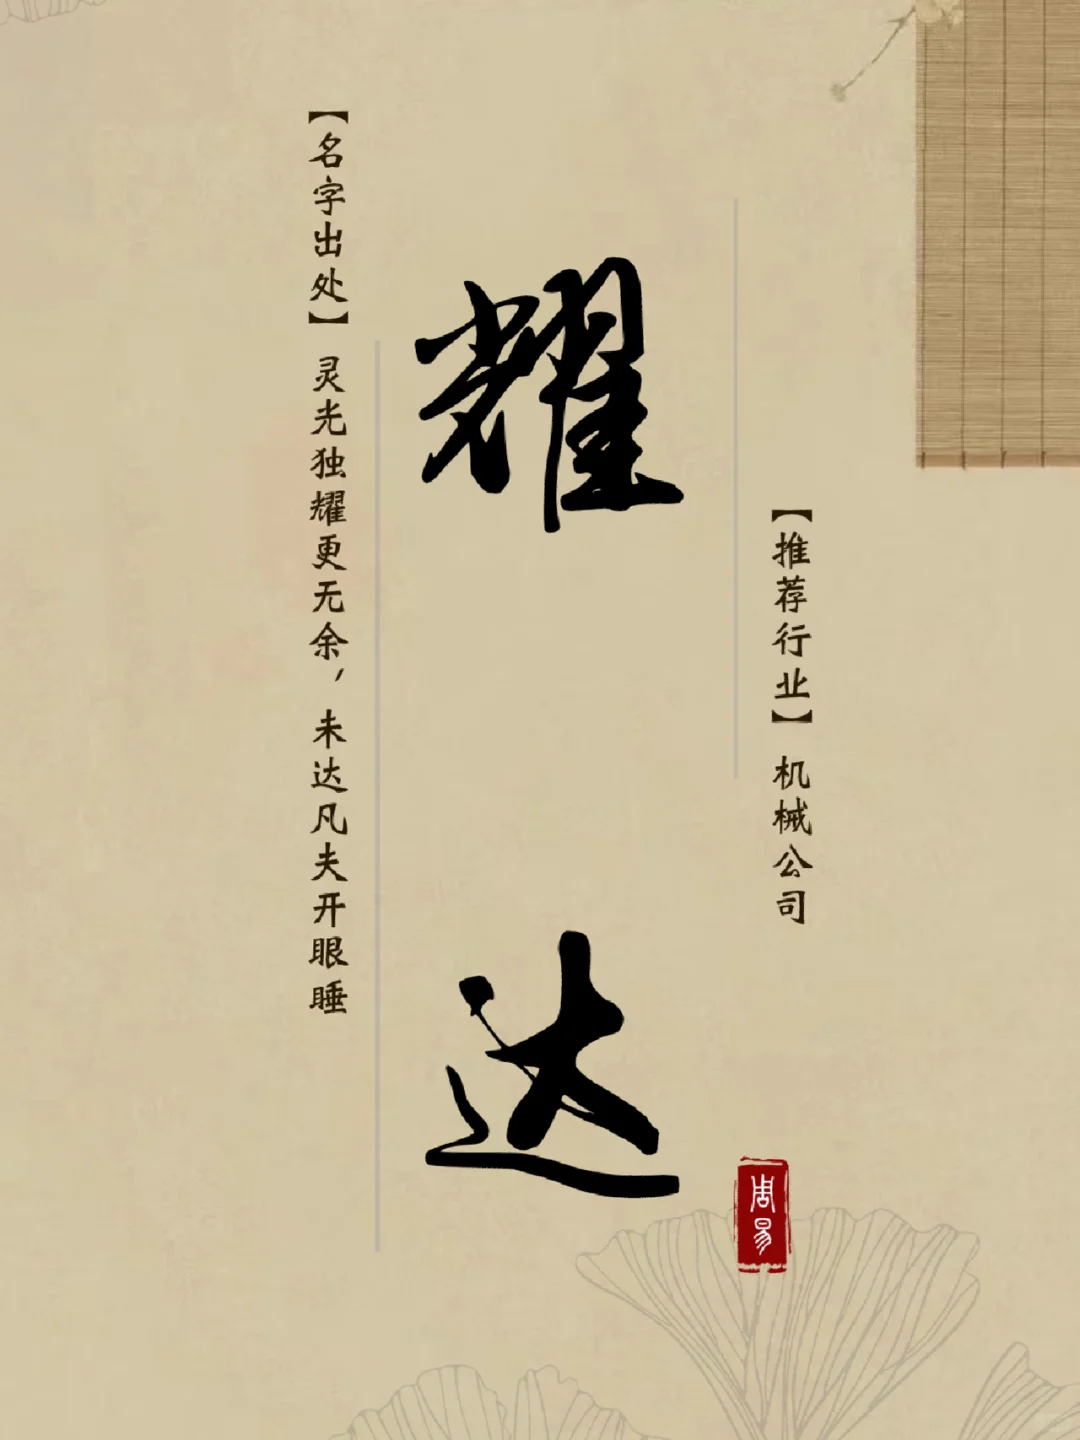 【推荐行业】机械公司
耀达
【名字出处】灵光独耀更无余，未达凡夫开眼睡
周易